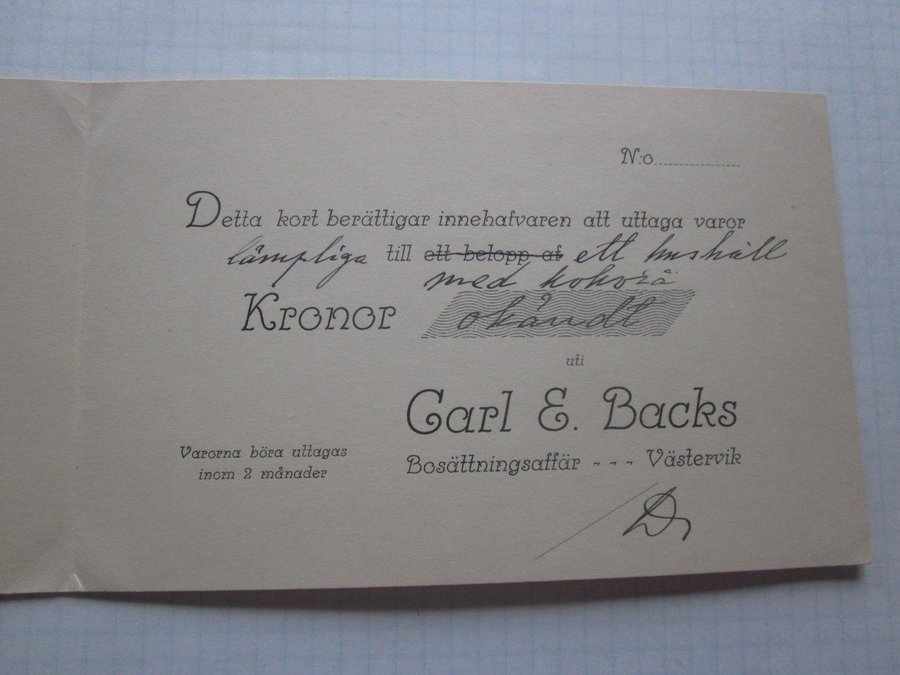 N:o
Detta kort berättigar innehafvaren att uttaga varor
lämpliga till ett belopp af ett hushåll
med kokvrå
Kronor okändt
uti
Carl E. Backs
Bosättningsaffär - - - Västervik
Varorna böra uttagas
inom 2 månader